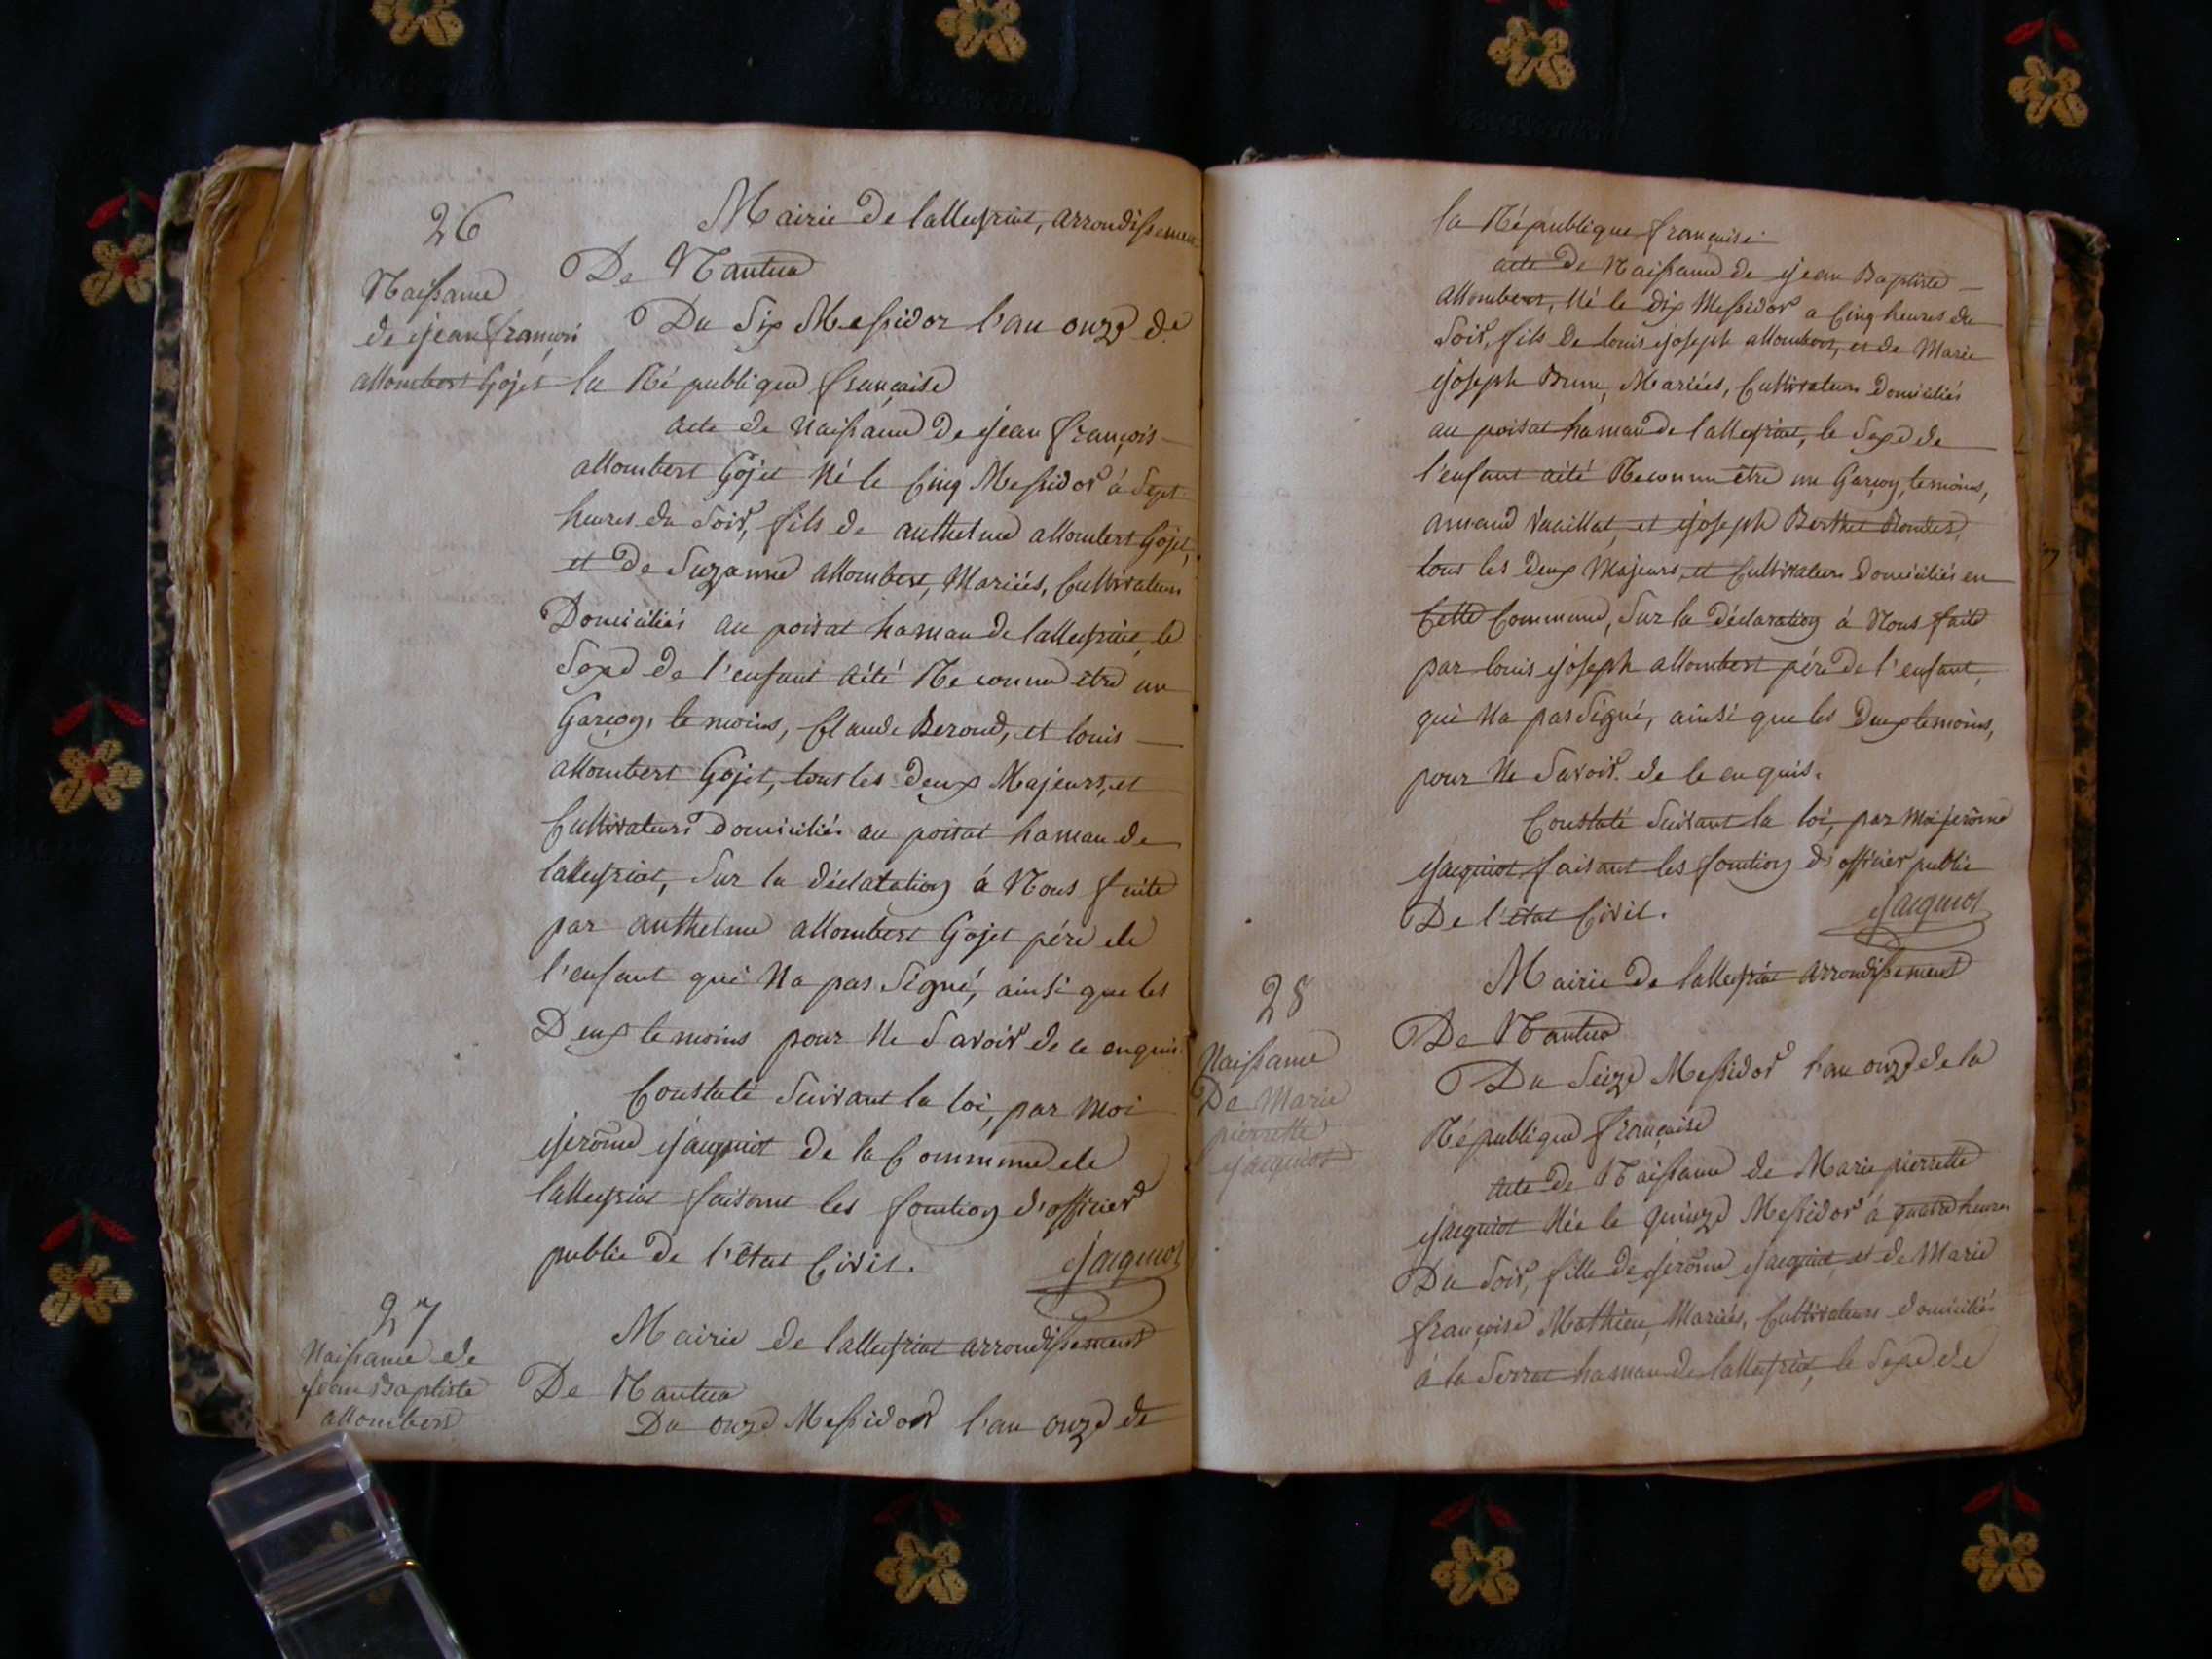 26
Naissance
de jean françois
allombert Gojet
Mairie De lalleyriat, arrondissement
De Nantua
Du Six Messidor l'an onze de
la République française
acte de Naissance De jean françois
allombert Gojet Né le Cinq Messidor à Sept
heures du Soir, fils de anthelme allombert Gojet,
et De Suzanne allombert, Mariées, Cultivateurs
Domiciliés au poizat hamau de lalleyriat, le
Sexe de l'enfant aété Reconnu être un
Garçon, temoins, Claude Beroud, et louis
allombert Gojet, tous les Deux Majeurs, et
Cultivateurs Domiciliés au poizat hamau de
lalleyriat, Sur la déclatation à Nous faite
par anthelme allombert Gojet pére de
l'enfant qui Na pas Signé, ainsi que les
Deux temoins pour Ne Savoir de ce enquis.
Constaté Suivant la loi, par moi
jerôme jacquiot De la Commune de
lalleyriat faisant les fonction d'officier
public De l'état Civil.
jacquiot
27
Naissance de
jean Baptiste
allombert
Mairie de lalleyriat arrondissement
De Nantua
Du onze Messidor l'an onze de
la République française
acte De Naissance de jean Baptiste
allombert, Né le dix Messidor a Cinq heures du
Soir, fils De louis joseph allombert, et de Marie
joseph Brun, Mariées, Cultivateurs Domiciliés
au poizat hamau de lalleyriat, le Sexe de
l'enfant aété Reconnu être un Garçon, temoins,
armand Vuaillat, et joseph Berthet Bondet,
tous les Deux Majeurs, et Cultivateurs Domiciliés en
Cette Commune, Sur la Déclaration à Nous faite
par louis joseph allombert pére De l'enfant,
qui Na pas Signé, ainsi que les Deux temoins,
pour Ne Savoir. de ce enquis.
Constaté Suivant la loi, par Moi jerôme
jacquiot faisant les fonction d'officier public
De l'état Civil.
jacquiot
28
Naissance
De Marie
pierrette
jacquiot
Mairie De lalleyriat arrondissement
De Nantua
Du Seize Messidor l'an onze de la
République française
acte De Naissance de Marie pierrette
jacquiot Née le Quinze Messidor à quatre heures
Du Soir, fille de jerôme jacquiot, et de Marie
françoise Mathieu, Mariés, Cultivateurs domiciliés
à la Serraz hamau de lalleyriat, le Sexe de